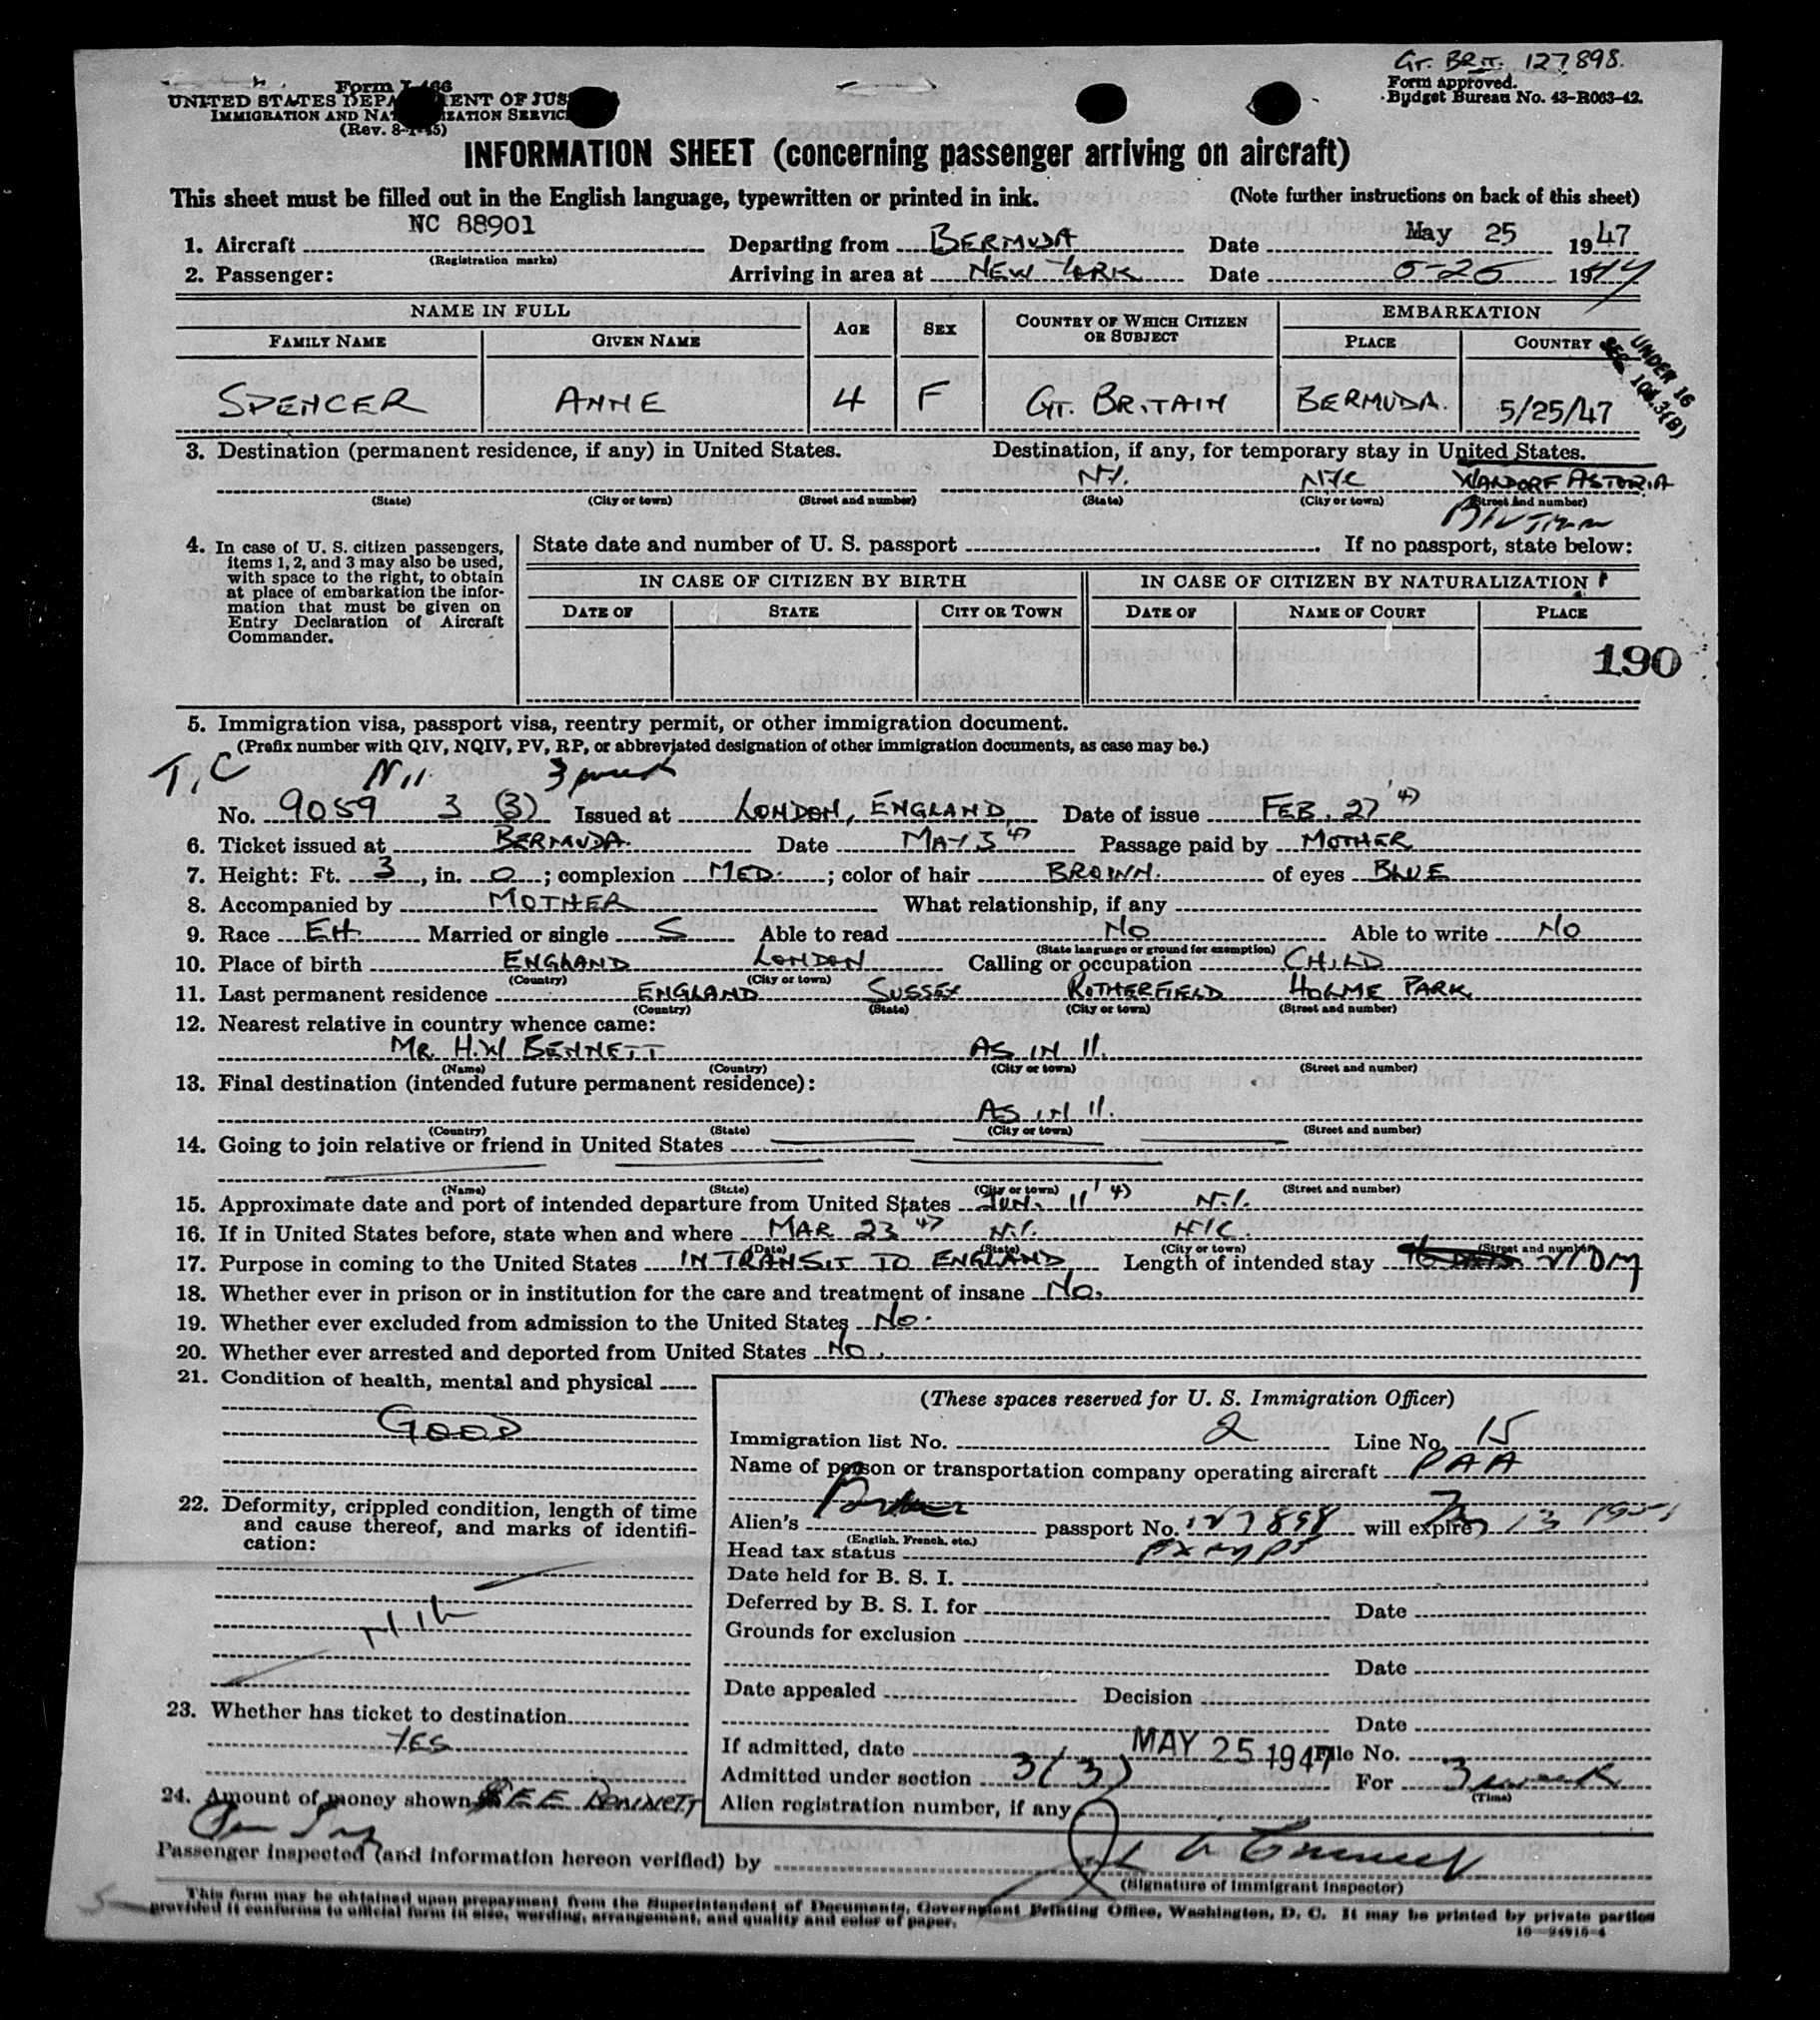 Gt. Brit. 127898.
Form I-466
UNITED STATES DEPARTMENT OF JUSTICE
IMMIGRATION AND NATURALIZATION SERVICE
(Rev. 8-1-45)
Form approved.
Budget Bureau No. 43-R063-42.
INFORMATION SHEET (concerning passenger arriving on aircraft)
This sheet must be filled out in the English language, typewritten or printed in ink. (Note further instructions on back of this sheet)
1. Aircraft NC 88901 Departing from BERMUDA Date May 25 1947
(Registration marks)
2. Passenger: Arriving in area at NEW YORK Date 5-25 1947
NAME IN FULL AGE SEX COUNTRY OF WHICH CITIZEN OR SUBJECT EMBARKATION
FAMILY NAME GIVEN NAME PLACE COUNTRY
UNDER 16
SEC 104.3(B)
SPENCER ANNE 4 F GT. BRITAIN BERMUDA. 5/25/47
3. Destination (permanent residence, if any) in United States. Destination, if any, for temporary stay in United States.
N.Y. NYC WALDORF ASTORIA
(State) (City or town) (Street and number) (State) (City or town) (Street and number)
4. In case of U. S. citizen passengers, items 1, 2, and 3 may also be used, with space to the right, to obtain at place of embarkation the information that must be given on Entry Declaration of Aircraft Commander.
State date and number of U. S. passport . If no passport, state below:
IN CASE OF CITIZEN BY BIRTH IN CASE OF CITIZEN BY NATURALIZATION
DATE OF STATE CITY OR TOWN DATE OF NAME OF COURT PLACE
190
5. Immigration visa, passport visa, reentry permit, or other immigration document.
(Prefix number with QIV, NQIV, PV, RP, or abbreviated designation of other immigration documents, as case may be.)
T.C
No. 9059 3 (3) Issued at LONDON, ENGLAND Date of issue FEB. 27 '47
6. Ticket issued at BERMUDA. Date MAY 3 '47 Passage paid by MOTHER
7. Height: Ft. 3, in. 0; complexion MED.; color of hair BROWN. of eyes BLUE
8. Accompanied by MOTHER What relationship, if any
9. Race EH. Married or single S Able to read No Able to write No
(State language or ground for exemption)
10. Place of birth ENGLAND LONDON Calling or occupation CHILD
(Country) (City or town)
11. Last permanent residence ENGLAND SUSSEX ROTHERFIELD HOLME PARK
(Country) (State) (City or town) (Street and number)
12. Nearest relative in country whence came:
MR. H.W BENNETT AS IN 11.
(Name) (Country) (City or town) (Street and number)
13. Final destination (intended future permanent residence):
AS IN 11.
(Country) (State) (City or town) (Street and number)
14. Going to join relative or friend in United States
(Name) (State) (City or town) (Street and number)
15. Approximate date and port of intended departure from United States JUN. 11 '47 N.Y.
16. If in United States before, state when and where MAR 23 '47 N.Y. NYC.
(Date) (State) (City or town) (Street and number)
17. Purpose in coming to the United States IN TRANSIT TO ENGLAND Length of intended stay
18. Whether ever in prison or in institution for the care and treatment of insane No.
19. Whether ever excluded from admission to the United States No.
20. Whether ever arrested and deported from United States No.
21. Condition of health, mental and physical
GOOD
22. Deformity, crippled condition, length of time and cause thereof, and marks of identification:
Nil
23. Whether has ticket to destination
YES
24. Amount of money shown SEE BENNETT
(These spaces reserved for U. S. Immigration Officer)
Immigration list No. 2 Line No. 15
Name of person or transportation company operating aircraft PAA
Alien's passport No. 127898 will expire
(English, French, etc.)
Head tax status Exempt
Date held for B. S. I.
Deferred by B. S. I. for Date
Grounds for exclusion
Date
Date appealed Decision
Date
If admitted, date MAY 25 1947 File No.
Admitted under section 3(3) For 3 week
(Time)
Alien registration number, if any
Passenger inspected (and information hereon verified) by
(Signature of Immigrant Inspector)
This form may be obtained upon prepayment from the Superintendent of Documents, Government Printing Office, Washington, D. C. It may be printed by private parties
provided it conforms to official form in size, wording, arrangement, and quality and color of paper.
16—24915-4